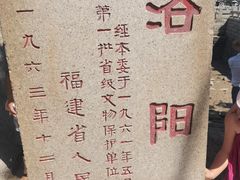 洛阳
经本委于一九六一年五
第一批省级文物保护单位
福建省人民
一九六三年十二月